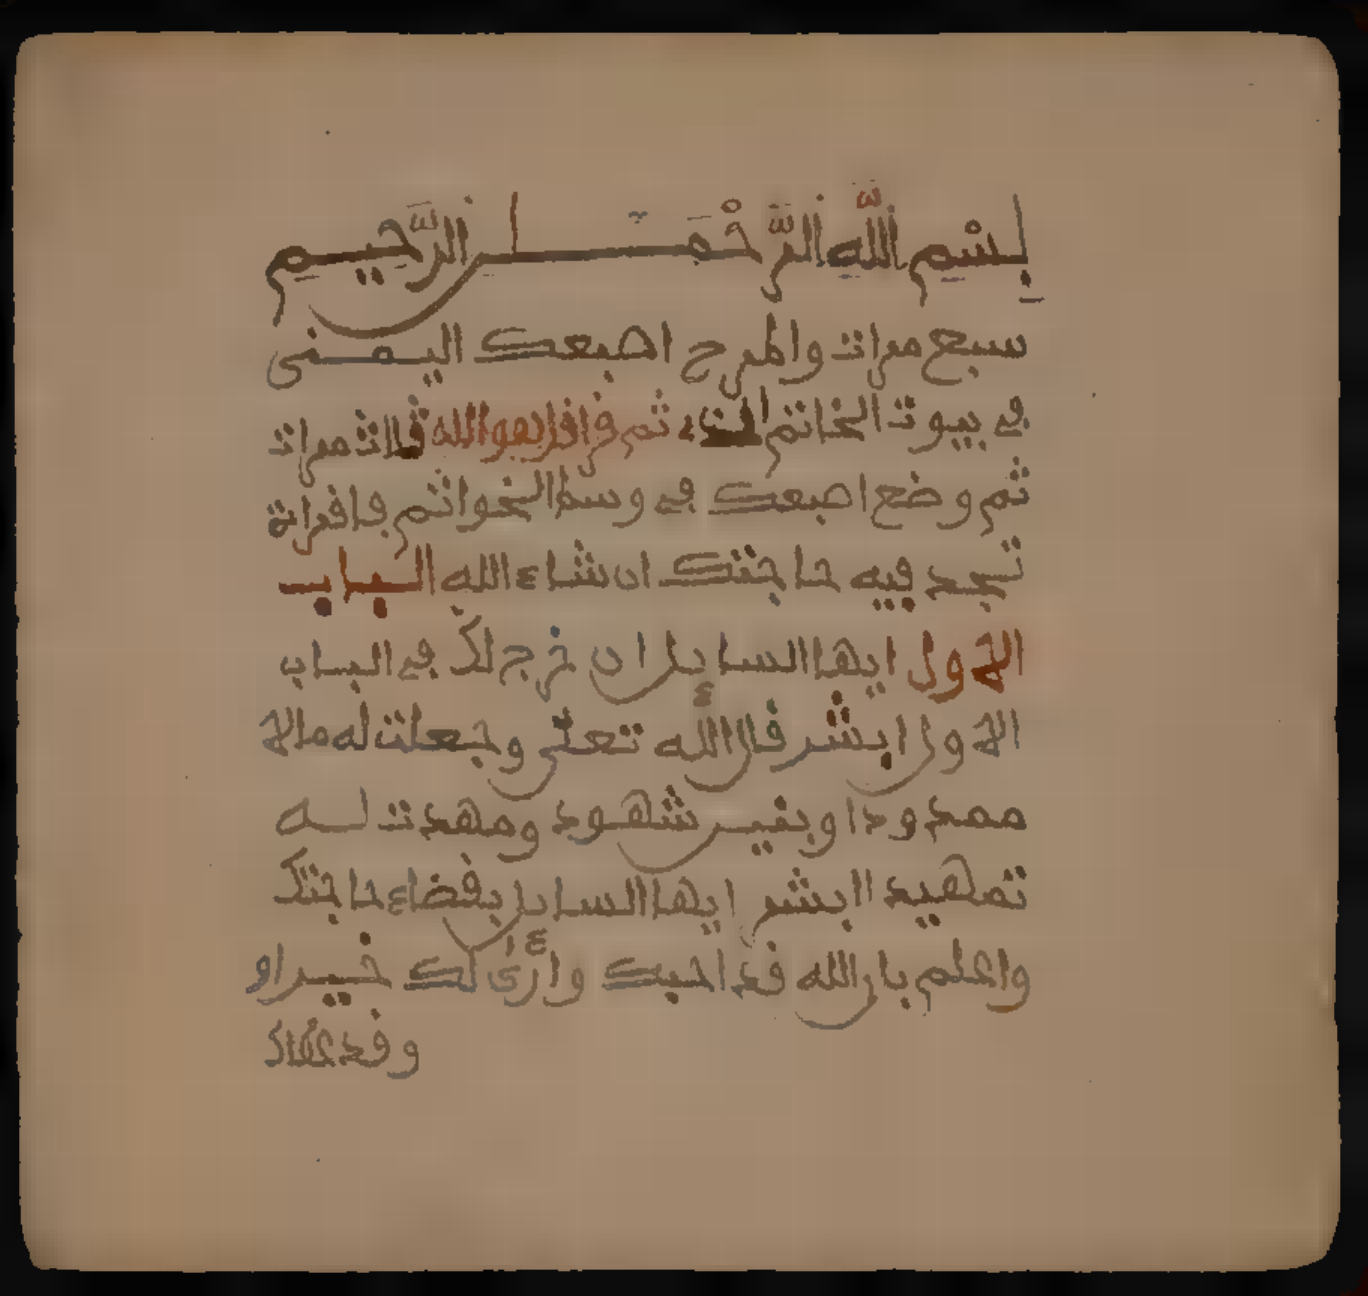 بِسْمِ اللَّهِ الرَّحْمَـٰنِ الرَّحِيمِ
سبع مرات واطرح اصبعك اليمنى
في بيوت الخاتم ثم قل هو الله ثلاث مرات
ثم وضع اصبعك في وسط الخواتم فاقرات
تجد فيه حاجتك ان شاء الله الباب
الاول ايها السايل ان خرج لك في الباب
الاول ابشر قال الله تعلى وجعلت له مالا
ممدودا وبنين شهود ومهدت له
تمهيد اابشر ايها السايل بقضاء حاجتك
واعلم بان الله قد احبك واراى لك خيراو
وقد